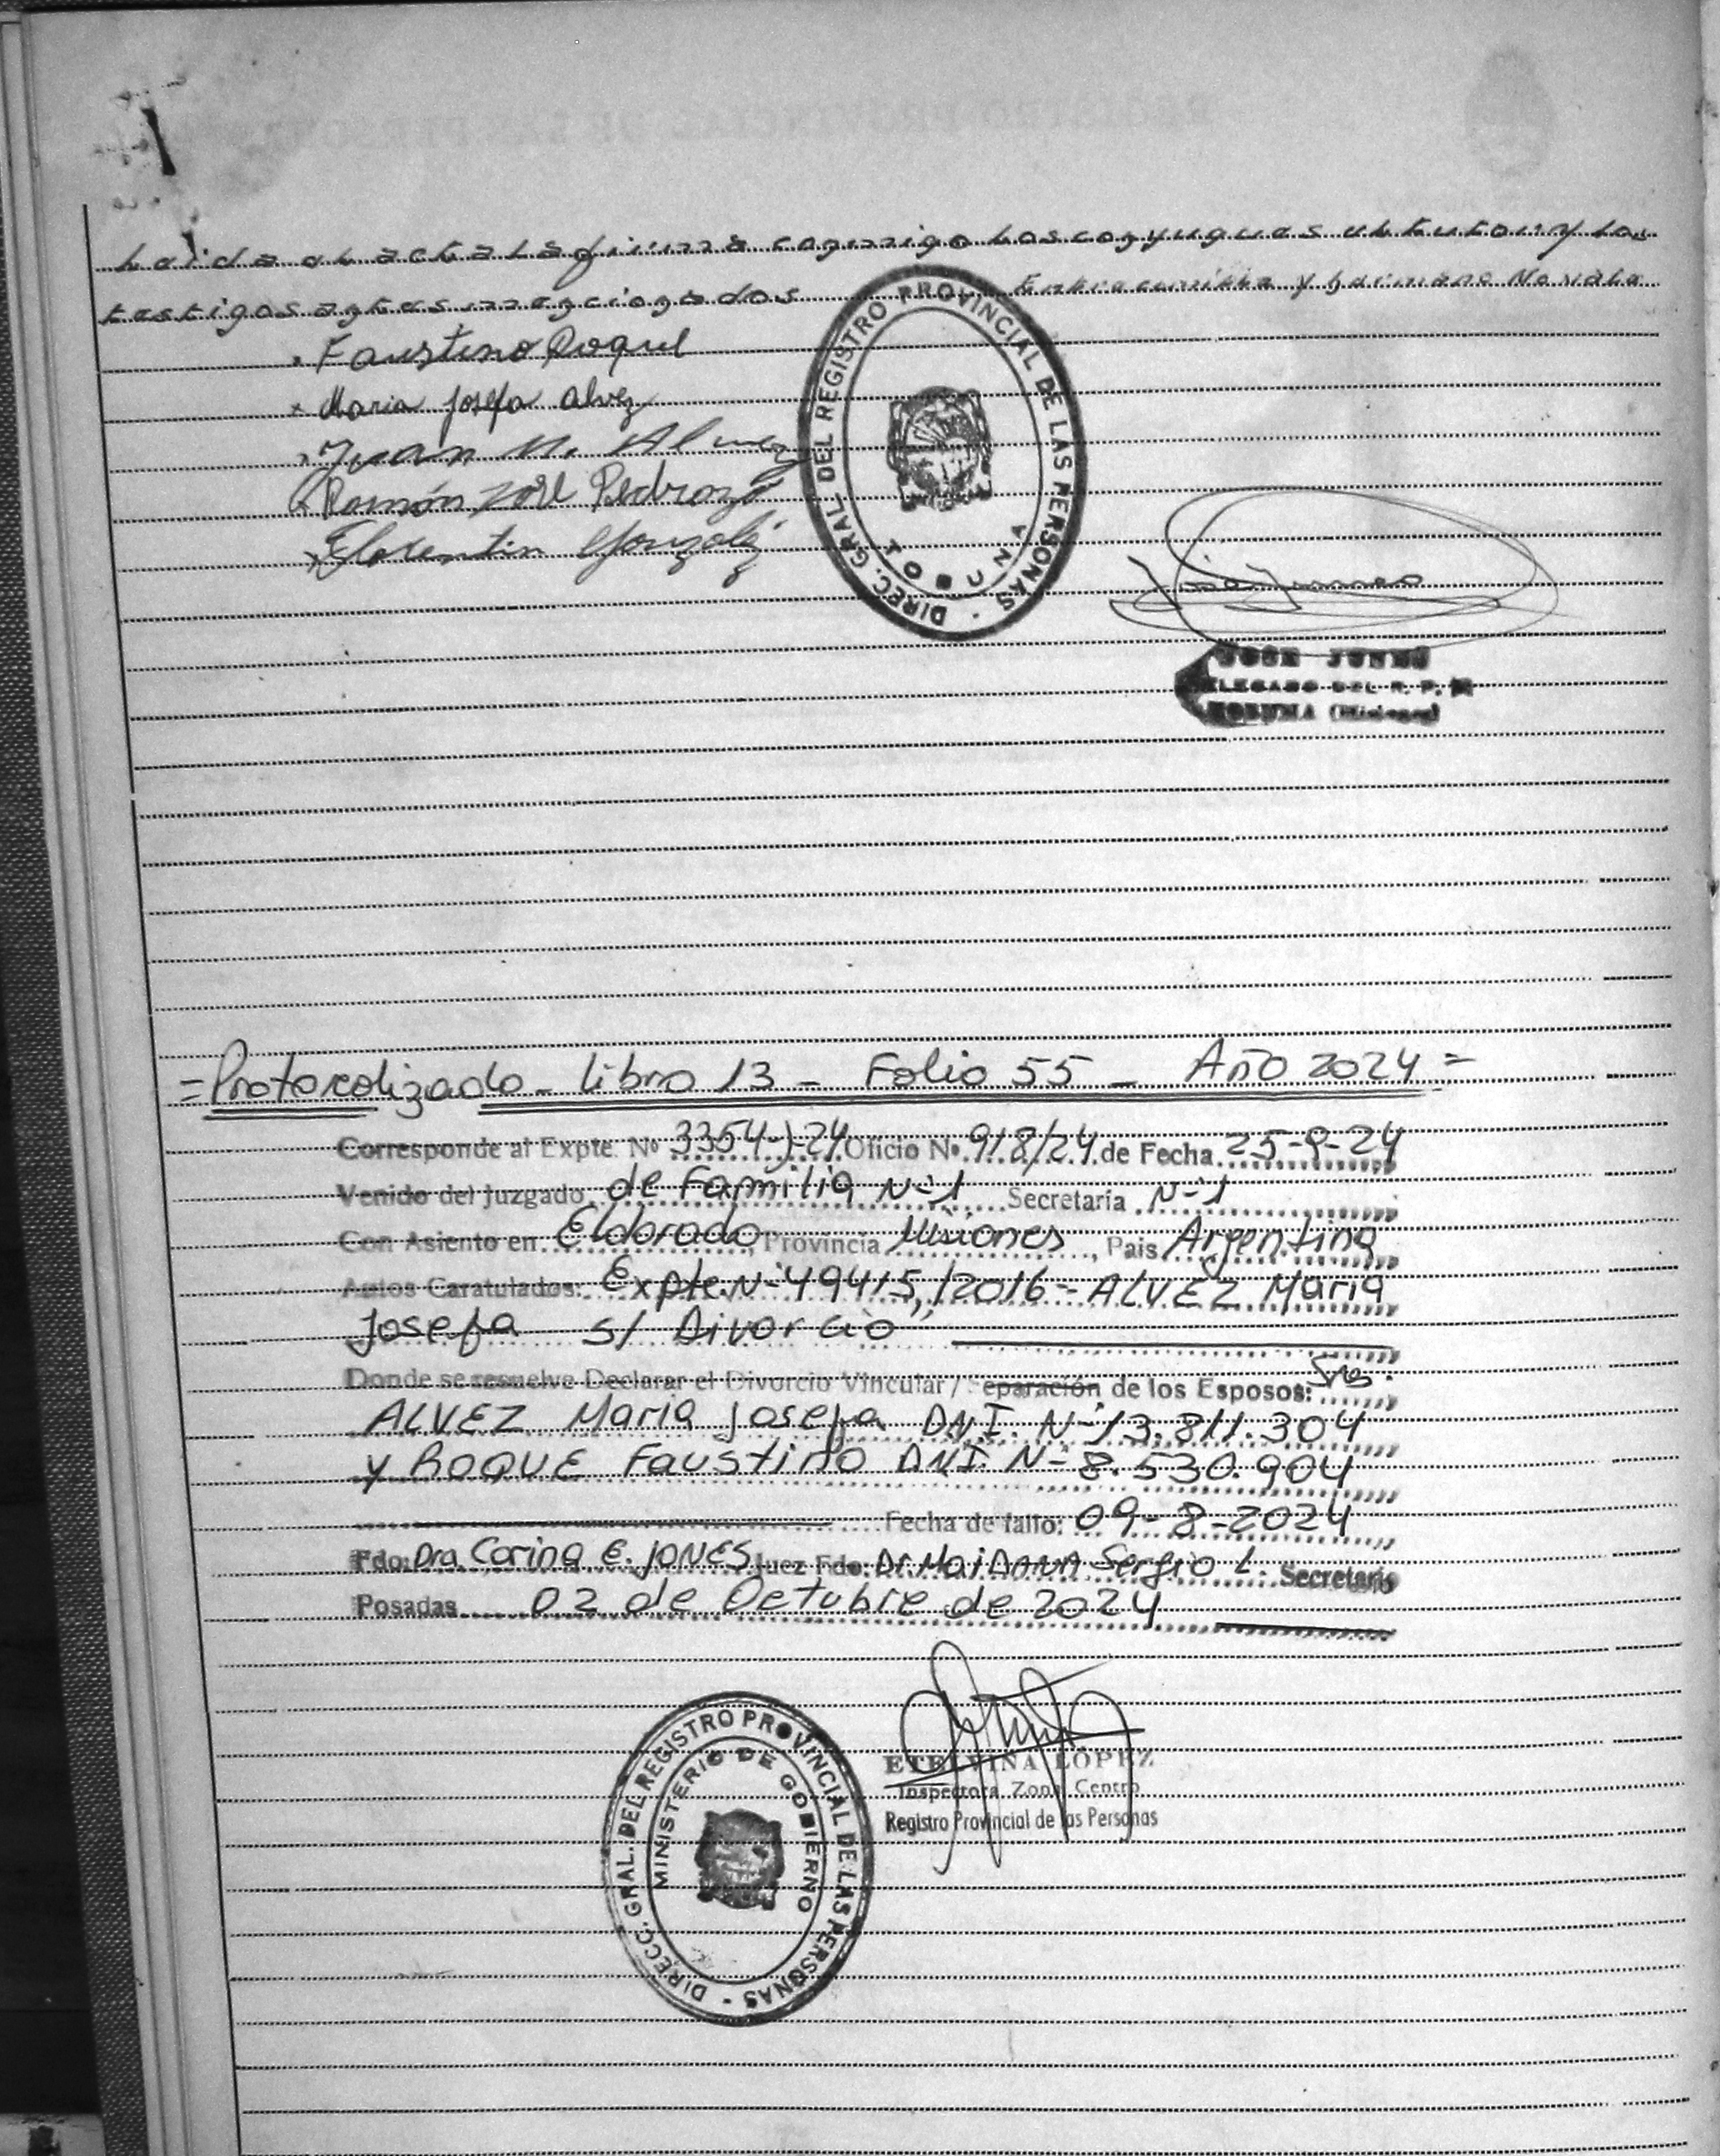 Leida el acta la firma conmigo los conyugues el tutor y los
testigos antes mencionados Entre comillas y hermano No vale
Faustino Roque
Maria Josefa Alvez
Juan Alvez
Ramón José Pedrozo
Florentin Gonzalez
DIREC. GRAL. DEL REGISTRO PROVINCIAL DE LAS PERSONAS -
JOSE JUNES
DELEGADO DEL R. P. P.
(Misiones)
= Protocolizado - Libro 13 - Folio 55 - Año 2024 =
Corresponde al Expte. Nº 3354-J-24 Oficio Nº 918/24 de Fecha 25-9-24
Venido del Juzgado de Familia Nº 1 Secretaría Nº 1
Con Asiento en Eldorado, Provincia Misiones, Pais Argentina
Autos Caratulados: Expte Nº 49415/2016 - ALVEZ Maria
Josefa s/ Divorcio"
Donde se resuelve Declarar el Divorcio Vincular / Separación de los Esposos: Sres.
ALVEZ Maria Josefa D.N.I. Nº 13.811.304
y ROQUE Faustino DNI. Nº 8.530.904
Fecha de fallo: 09-8-2024
Fdo: Dra Corina E. JONES Juez Fdo: Dr MaiDANA Sergio L. Secretario
Posadas 02 de Octubre de 2024
DIRECC. GRAL. DEL REGISTRO PROVINCIAL DE LAS PERSONAS -
MINISTERIO DE GOBIERNO
ETELVINA LÓPEZ
Inspectora Zona Centro
Registro Provincial de las Personas